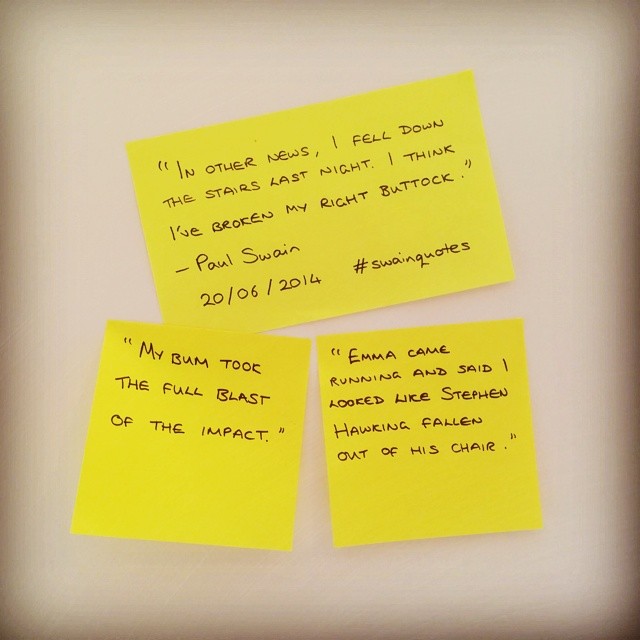 “IN OTHER NEWS, I FELL DOWN
THE STAIRS LAST NIGHT. I THINK
I'VE BROKEN MY RIGHT BUTTOCK.”
– Paul Swain
20/06/2014 #swainquotes
“MY BUM TOOK
THE FULL BLAST
OF THE IMPACT.”
“EMMA CAME
RUNNING AND SAID I
LOOKED LIKE STEPHEN
HAWKING FALLEN
OUT OF HIS CHAIR.”